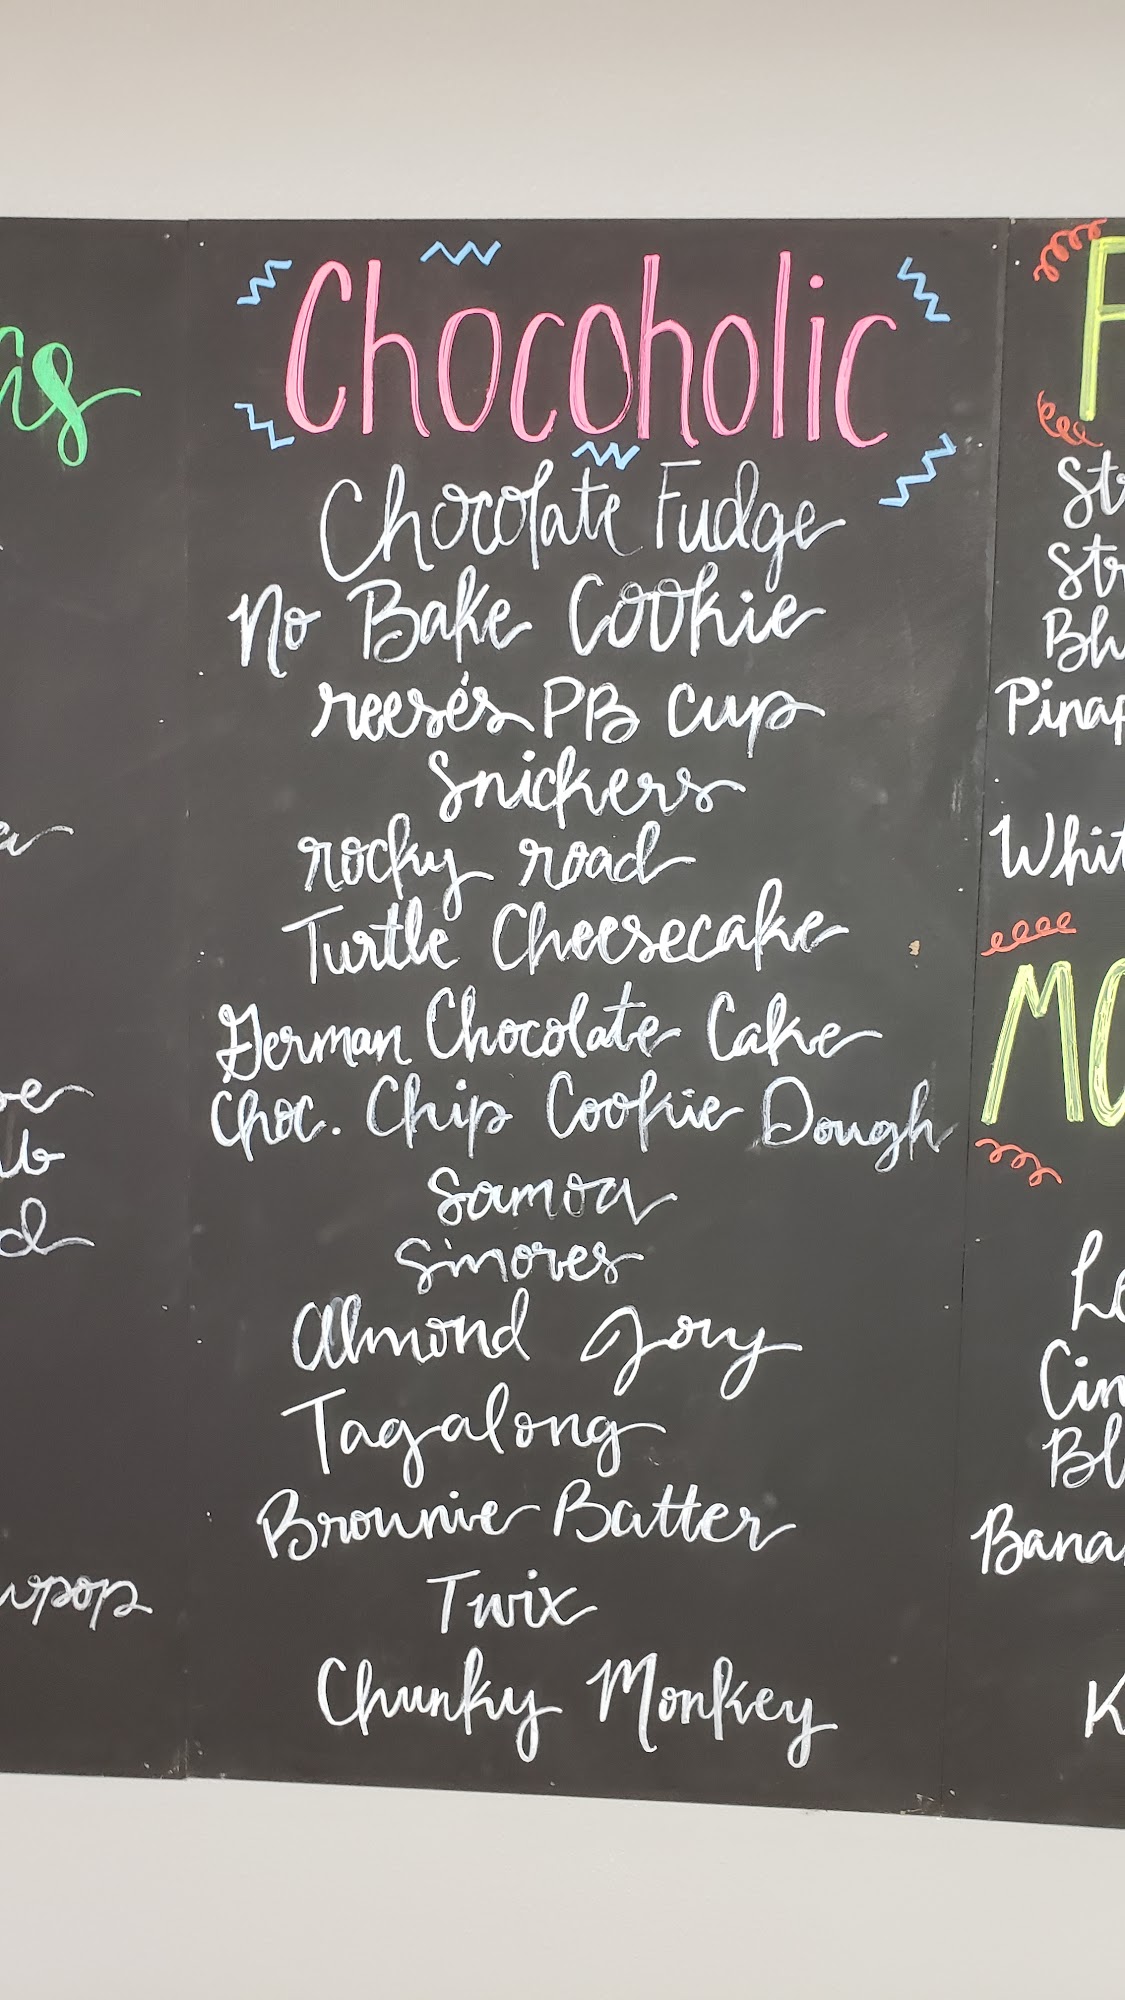 Chocoholic
Chocolate Fudge
No Bake Cookie
reese's PB Cup
Snickers
rocky road
Turtle Cheesecake
German Chocolate Cake
Choc. Chip Cookie Dough
Samoa
S'mores
Almond Joy
Tagalong
Brownie Batter
Twix
Chunky Monkey